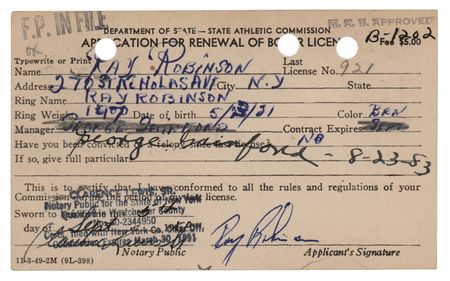 F.P. IN FILE
OK
M.E.B. APPROVED
B-1202
DEPARTMENT OF STATE—STATE ATHLETIC COMMISSION
APPLICATION FOR RENEWAL OF BOXER LICENSE
Fee $5.00
Typewrite or Print
Name RAY ROBINSON Last License No. 921
Address 270 ST NICHOLAS AVE City N.Y State
Ring Name RAY ROBINSON
Ring Weight Date of birth 5/3/21 Color BRN
Manager GEORGE GAINFORD Contract Expires SEPT
Have you been convicted felony NO
George Gainford - 8-23-53
If so, give full particulars
This is to certify that I have conformed to all the rules and regulations of your
Commission during the period of my license.
CLARENCE LEWIS, SR.
Notary Public for the State of New York
Qualified in Westchester County
No. 60-2344950
Certs. filed with New York Co.
Expires March 30, 1951
Sworn to
day of Sept
Ray Robinson
Notary Public Applicant's Signature
11-3-49-2M (9L-398)